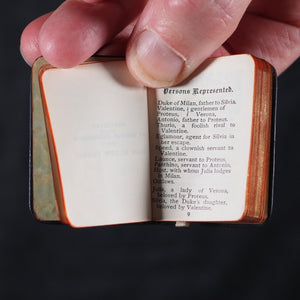 Persons Represented.
Duke of Milan, father to Silvia.
Valentine, } gentlemen of
Proteus, } Verona.
Antonio, father to Proteus.
Thurio, a foolish rival to
Valentine.
Eglamour, agent for Silvia in
her escape.
Speed, a clownish servant to
Valentine.
Launce, servant to Proteus.
Panthino, servant to Antonio.
Host, with whom Julia lodges
in Milan.
Outlaws.
Julia, a lady of Verona,
beloved by Proteus.
Silvia, the Duke's daughter,
beloved by Valentine.